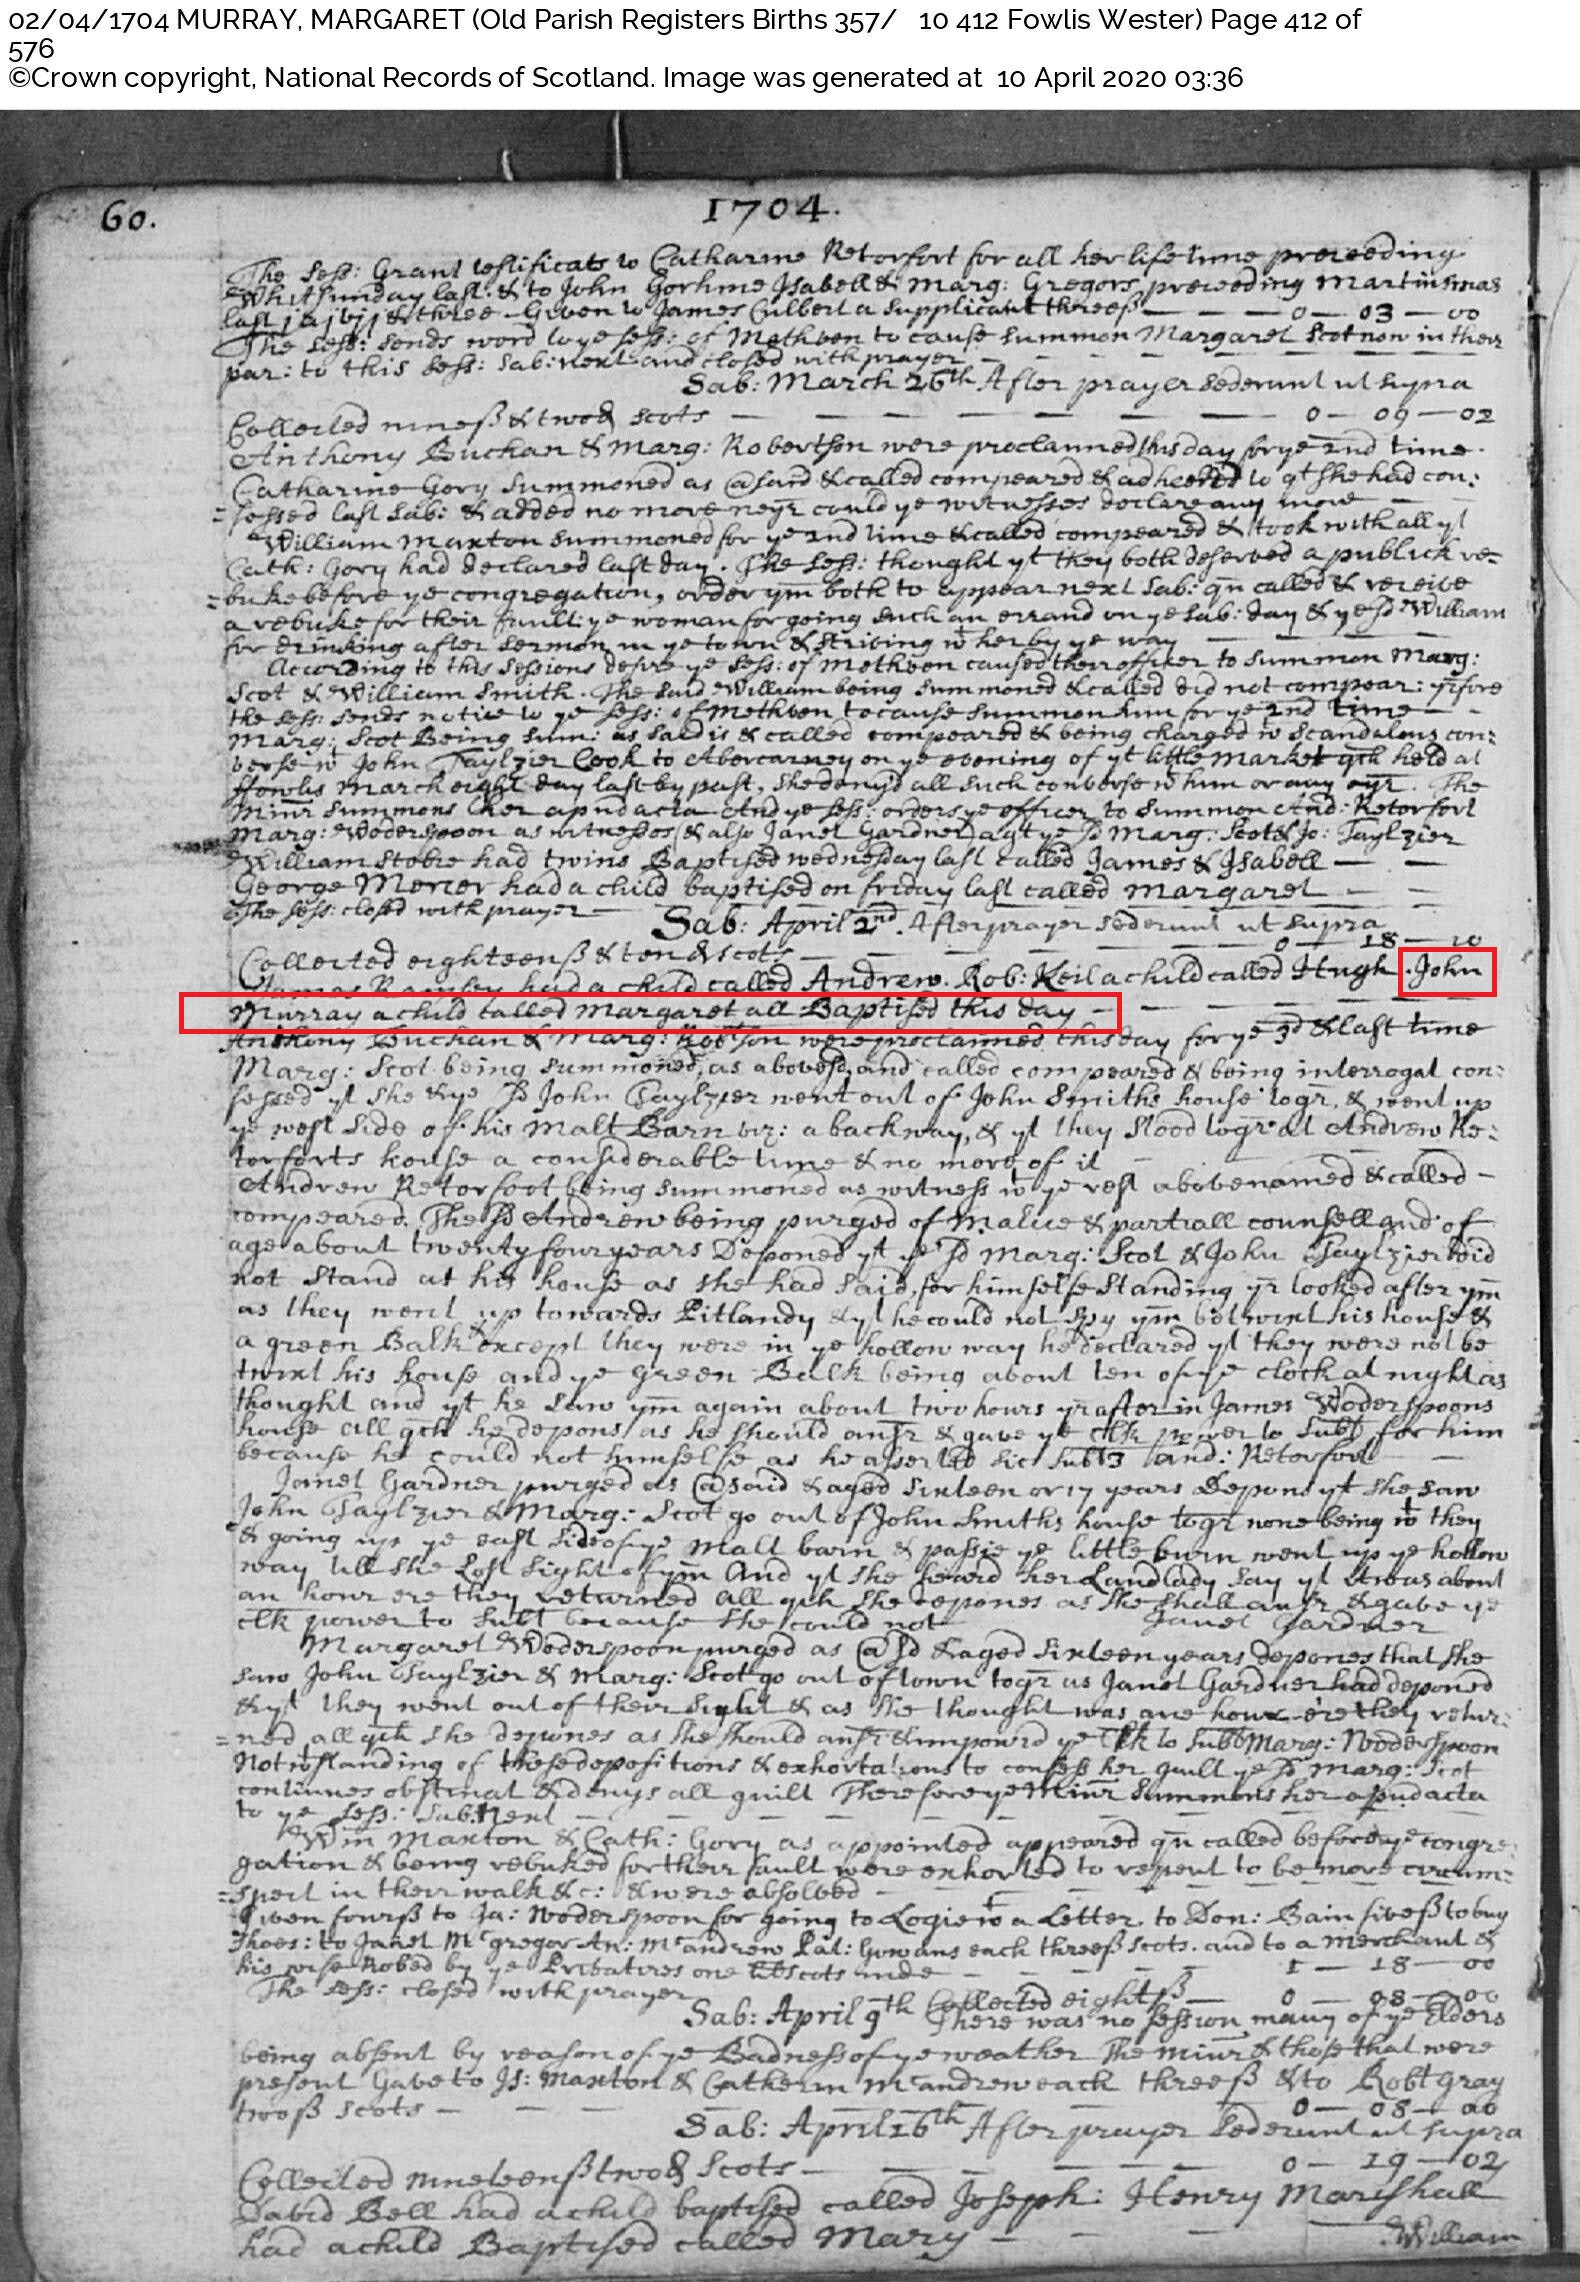 02/04/1704 MURRAY, MARGARET (Old Parish Registers Births 357/   10 412 Fowlis Wester) Page 412 of
576
©Crown copyright, National Records of Scotland. Image was generated at  10 April 2020 03:36
60.
1704.
The Sess: Grant testificats to Catharine Retorfort for all her life time preceeding
Whitsunday last. & to John Gorhme Isabell & Marg: Gregors preceeding Martinsmas
last & three – Given to James Culbert a supplicant threeß — — — 0 — 03 — 00
The Sess: sends word to ye sess: of Methven to cause summon Margaret Scot now in their
par: to this sess: sab: next and closed with prayer
Sab: March 26th After prayer sederunt ut supra
Collected nineß & two d scots — — — — — — 0 — 09 — 02
Anthony Buchan & Marg: Robertson were proclaimed this day for ye 2nd time.
Catharine Gory summoned as @said & called compeared & adheered to qt she had con:
=fessed last sab: & added no more neyr could ye witnesses declare any more —
William Maxton summoned for ye 2nd time & called compeared & took with all yt
Cath: Gory had declared last day. The Sess: thought yt they both deserved a publick re=
=buke before ye congregation, order ym both to appear next Sab: qn called & receive
a rebuke for their fault: ye woman for going such an errand on ye Sab: day & ye sd William
for drinking after sermon in ye town & striving wt her by ye way — — — —
According to this sessions desire ye sess: of Methven caused their officer to summon Marg:
Scot & William Smith. The said William being summoned & called did not compear: yrfore
the sess: sends notice to ye sess: of Methven to cause summon him for ye 2nd time — -
Marg: Scot Being sum: as said is & called compeared & being charged wt scandalous con:
verse wt John Taylzier Cook to Abercarney on ye evening of yt little market qch held at
ffowlis March eight day last by past, she deny'd all such converse wt him or any oyr. The
Minr summons her apud acta And ye sess: orders ye officer to summon And: Retorfort
Marg: Woderspoon as witnesses & also Janet Gardner agt ye sd Marg: Scot & Jo: Taylzier
William Stobie had twins Baptised wednesday last called James & Isabell — —
George Mercer had a child baptised on friday last called Margaret — —
The sess: closed with prayer —
Sab: April 2nd. After prayer sederunt ut supra
Collected eighteenß & ten d scots — — — — — 0 — 18 — 10
James Ramsey had a child called Andrew. Rob: Keil a child called Hugh. John
Murray a child called Margaret all Baptised this day — — — — —
Anthony Buchan & Marg: Robtson were proclaimed this day for ye 3d & last time
Marg: Scot being summoned, as abovesd, and called compeared & being interrogat con:
fessed yt she & ye sd John Taylzier went out of John Smiths house togr, & went up
ye west side of his Malt Barn viz: a backway, & yt they stood togr at Andrew Re:
torforts house a considerable time & no more of it —
Andrew Retorfoot being summoned as witness wt ye rest abovenamed & called —
compeared. The sd Andrew being purged of malice & partiall counsell and of
age about twenty four years Deponed yt ye sd Marg: Scot & John Taylzier did
not stand at his house as she had said, for himselfe standing yr looked after ym
as they went up towards Pitlandy & yt he could not spy ym betwixt his house &
a green Balk except they were in ye hollow way he declared yt they were not be
twixt his house and ye Green Balk being about ten of ye clock at night as
thought and yt he saw ym again about two hours yrafter in James Woderspoons
house all qch he depons as he should ansr & gave ye clk power to subt for him
because he could not himselfe as he asserted sic subt And: Retorfort —
Janet Gardner purged as @said & aged sixteen or 17 years Depons yt she saw
John Taylzier & Marg: Scot go out of John Smiths house togr none being wt they
& going up ye east side of ye Malt barn & passie ye little burn went up ye hollow
way till she Lost sight of ym And yt she heard her Landlady say yt it was about
an hour ere they returned all qch she depones as she shall ansr & gave ye
clk power to subt because she could not Janet Gardner
Margaret Woderspoon purged as @sd & aged sixteen years depones that she
saw John Taylzier & Marg: Scot go out of town togr as Janet Gardner had deponed
& yt they went out of their sight & as she thought was ane hour ere they retur:
=ned all qch she depones as she should ansr & impowrd ye Clk to subt Marg: Woderspoon
Notwtstanding of these depositions & exhortations to confess her guilt ye sd Marg: Scot
continues obstinat & denys all guilt Therefore ye Minr summons her apud acta
to ye sess: Sab: Next — — — — —
Wm Maxton & Cath: Gory as appointed appeared qn called before ye congre
gation & being rebuked for their fault were exhorted to repent to be more circum=
=spect in their walk &c: & were absolved — — — — —
Given fourß to Ja: Woderspoon for going to Logie wt a Letter. to Don: Bain fiveß to buy
shoes: to Janet Mcgregor An: Mcandrew Pat: Gowans each threeß scots. and to a merchant &
his wife Robed by ye Privatires one lib scots inde — — — — 1 — 18 — 00
The sess: closed with prayer
Sab: April 9th Collected eightß — 0 — 08 — 00
There was no session many of ye Elders
being absent by reason of ye Badness of ye weather The minr & those that were
present Gave to Js: Maxton & Catherin Mcandrew each threeß & to Robt gray
twoß scots — — — — — 0 — 08 — 00
Sab: April 16th After prayer Sederunt ut supra
Collected nineteenß two d Scots — — — — — 0 — 19 — 02
David Bell had a child baptised called Joseph: Henry Marshall
had a child Baptised called Mary — — — —
William